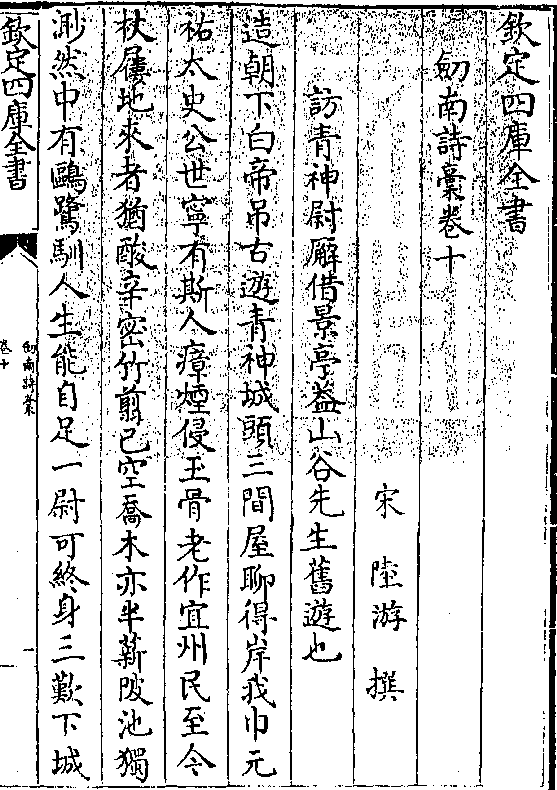 欽定四庫全書
劒南詩藁卷十
宋 陸游 撰
訪青神尉廨借景亭葢山谷先生舊遊也
造朝下白帝吊古遊青神城頭三間屋聊得岸我巾元
祐太史公世寧有斯人瘴煙侵玉骨老作宜州民至今
杖屨地來者猶酸辛密竹翦已空喬木亦半薪陂池獨
渺然中有鷗鷺馴人生能自足一尉可終身三歎下城
欽定四庫全書
劒南詩藁
卷十
一